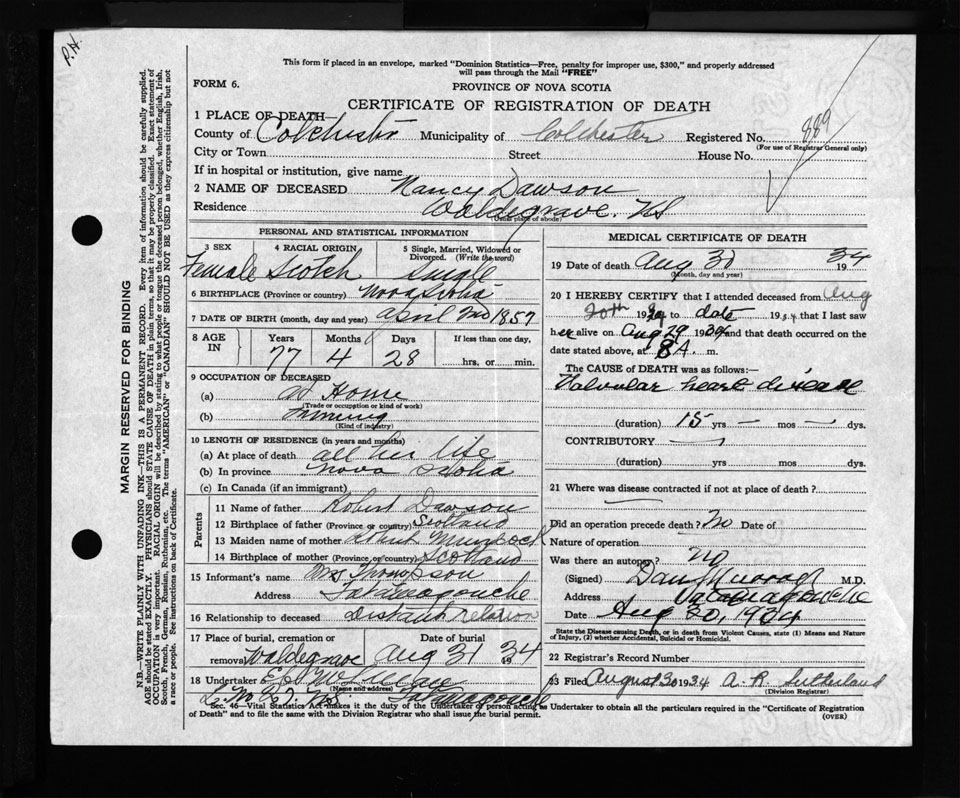 P.H.
This form if placed in an envelope, marked "Dominion Statistics—Free, penalty for improper use, $300," and properly addressed
will pass through the Mail "FREE"
FORM 6.
PROVINCE OF NOVA SCOTIA
CERTIFICATE OF REGISTRATION OF DEATH
1 PLACE OF DEATH—
County of Colchester Municipality of Colchester Registered No. 889
(For use of Registrar General only)
City or Town Street House No.
If in hospital or institution, give name
2 NAME OF DECEASED Nancy Dawson
Residence Waldegrave. N.S
(Usual place of abode)
PERSONAL AND STATISTICAL INFORMATION
3 SEX 4 RACIAL ORIGIN 5 Single, Married, Widowed or Divorced. (Write the word)
Female Scotch Single
6 BIRTHPLACE (Province or country) Nova Scotia
7 DATE OF BIRTH (month, day and year) April 1857
8 AGE IN Years Months Days If less than one day,
77 4 28 hrs. or min.
9 OCCUPATION OF DECEASED
(a) At Home
(Trade or occupation or kind of work)
(b)
(Kind of industry)
10 LENGTH OF RESIDENCE (in years and months)
(a) At place of death all her life
(b) In province Nova Scotia
(c) In Canada (if an immigrant)
Parents
11 Name of father Robert Dawson
12 Birthplace of father (Province or country) Scotland
13 Maiden name of mother Murdock
14 Birthplace of mother (Province or country) Scotland
15 Informant's name Mrs Thompson
Address Tatamagouche
16 Relationship to deceased distant relation
17 Place of burial, cremation or removal Date of burial
Waldegrave Aug 31 1934
18 Undertaker
(Name and address)
Tatamagouche
MEDICAL CERTIFICATE OF DEATH
19 Date of death Aug 30 1934
(month, day and year)
20 I HEREBY CERTIFY that I attended deceased from Aug
20th 1934 to date 1934 that I last saw
her alive on Aug 29 1934 and that death occurred on
date stated above, at 8 A. m.
The CAUSE of DEATH was as follows:
Valvular heart disease
(duration) 15 yrs — mos — dys.
CONTRIBUTORY
(duration) yrs mos dys.
21 Where was disease contracted if not at place of death?
Did an operation precede death? No Date of
Nature of operation
Was there an autopsy? no
(Signed) Dan Murray M.D.
Address Tatamagouche
Date Aug 30, 1934
State the Disease causing Death, or in death from Violent Causes, state (1) Means and Nature
of Injury, (2) whether Accidental, Suicidal or Homicidal.
22 Registrar's Record Number
23 Filed August 30 1934 A. R. Sutherland
(Division Registrar)
Sec. 46—Vital Statistics Act makes it the duty of the Undertaker or person acting as Undertaker to obtain all the particulars required in the "Certificate of Registration
of Death" and to file the same with the Division Registrar who shall issue the burial permit. (OVER)
MARGIN RESERVED FOR BINDING
N.B.—WRITE PLAINLY WITH UNFADING INK—THIS IS A PERMANENT RECORD. Every item of information should be carefully supplied.
AGE should be stated EXACTLY. PHYSICIANS should STATE CAUSE OF DEATH in plain terms, so that it may be properly classified. Exact statement of
OCCUPATION is very important. RACIAL ORIGIN will be described by stating to what people or tongue the deceased person belonged, whether English, Irish,
Scotch, French, German, Russian, Ruthenian, etc. The terms "AMERICAN" or "CANADIAN" SHOULD NOT BE USED as they express citizenship but not
a race or people. See instructions on back of Certificate.